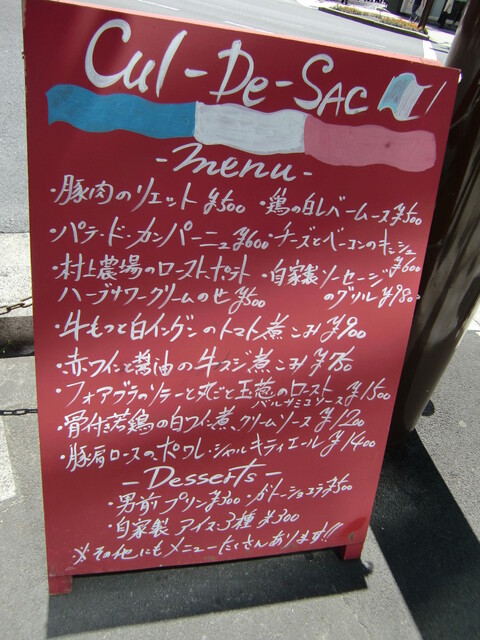 Cul-De-Sac
-menu-
・豚肉のリエット ¥500 ・鶏の白レバームース¥500
・パテ・ド・カンパーニュ¥600 ・チーズとベーコンのキッシュ ¥600
・村上農場のローストポテト
ハーブサワークリームのせ ¥500
・自家製ソーセージ
のグリル ¥980
・牛もつと白インゲンのトマト煮こみ¥900
・赤ワインと醤油の牛スジ煮こみ¥750
・フォアグラのソテーと丸ごと玉葱のロースト
バルサミコソース ¥1500
・骨付き若鶏の白ワイン煮、クリームソース ¥1200
・豚肩ロースのポワレ・シャルキティエール ¥1400
-Desserts-
・男前プリン¥300 ・ガトーショコラ¥500
・自家製 アイス3種 ¥300
※その他にもメニューたくさんあります!!